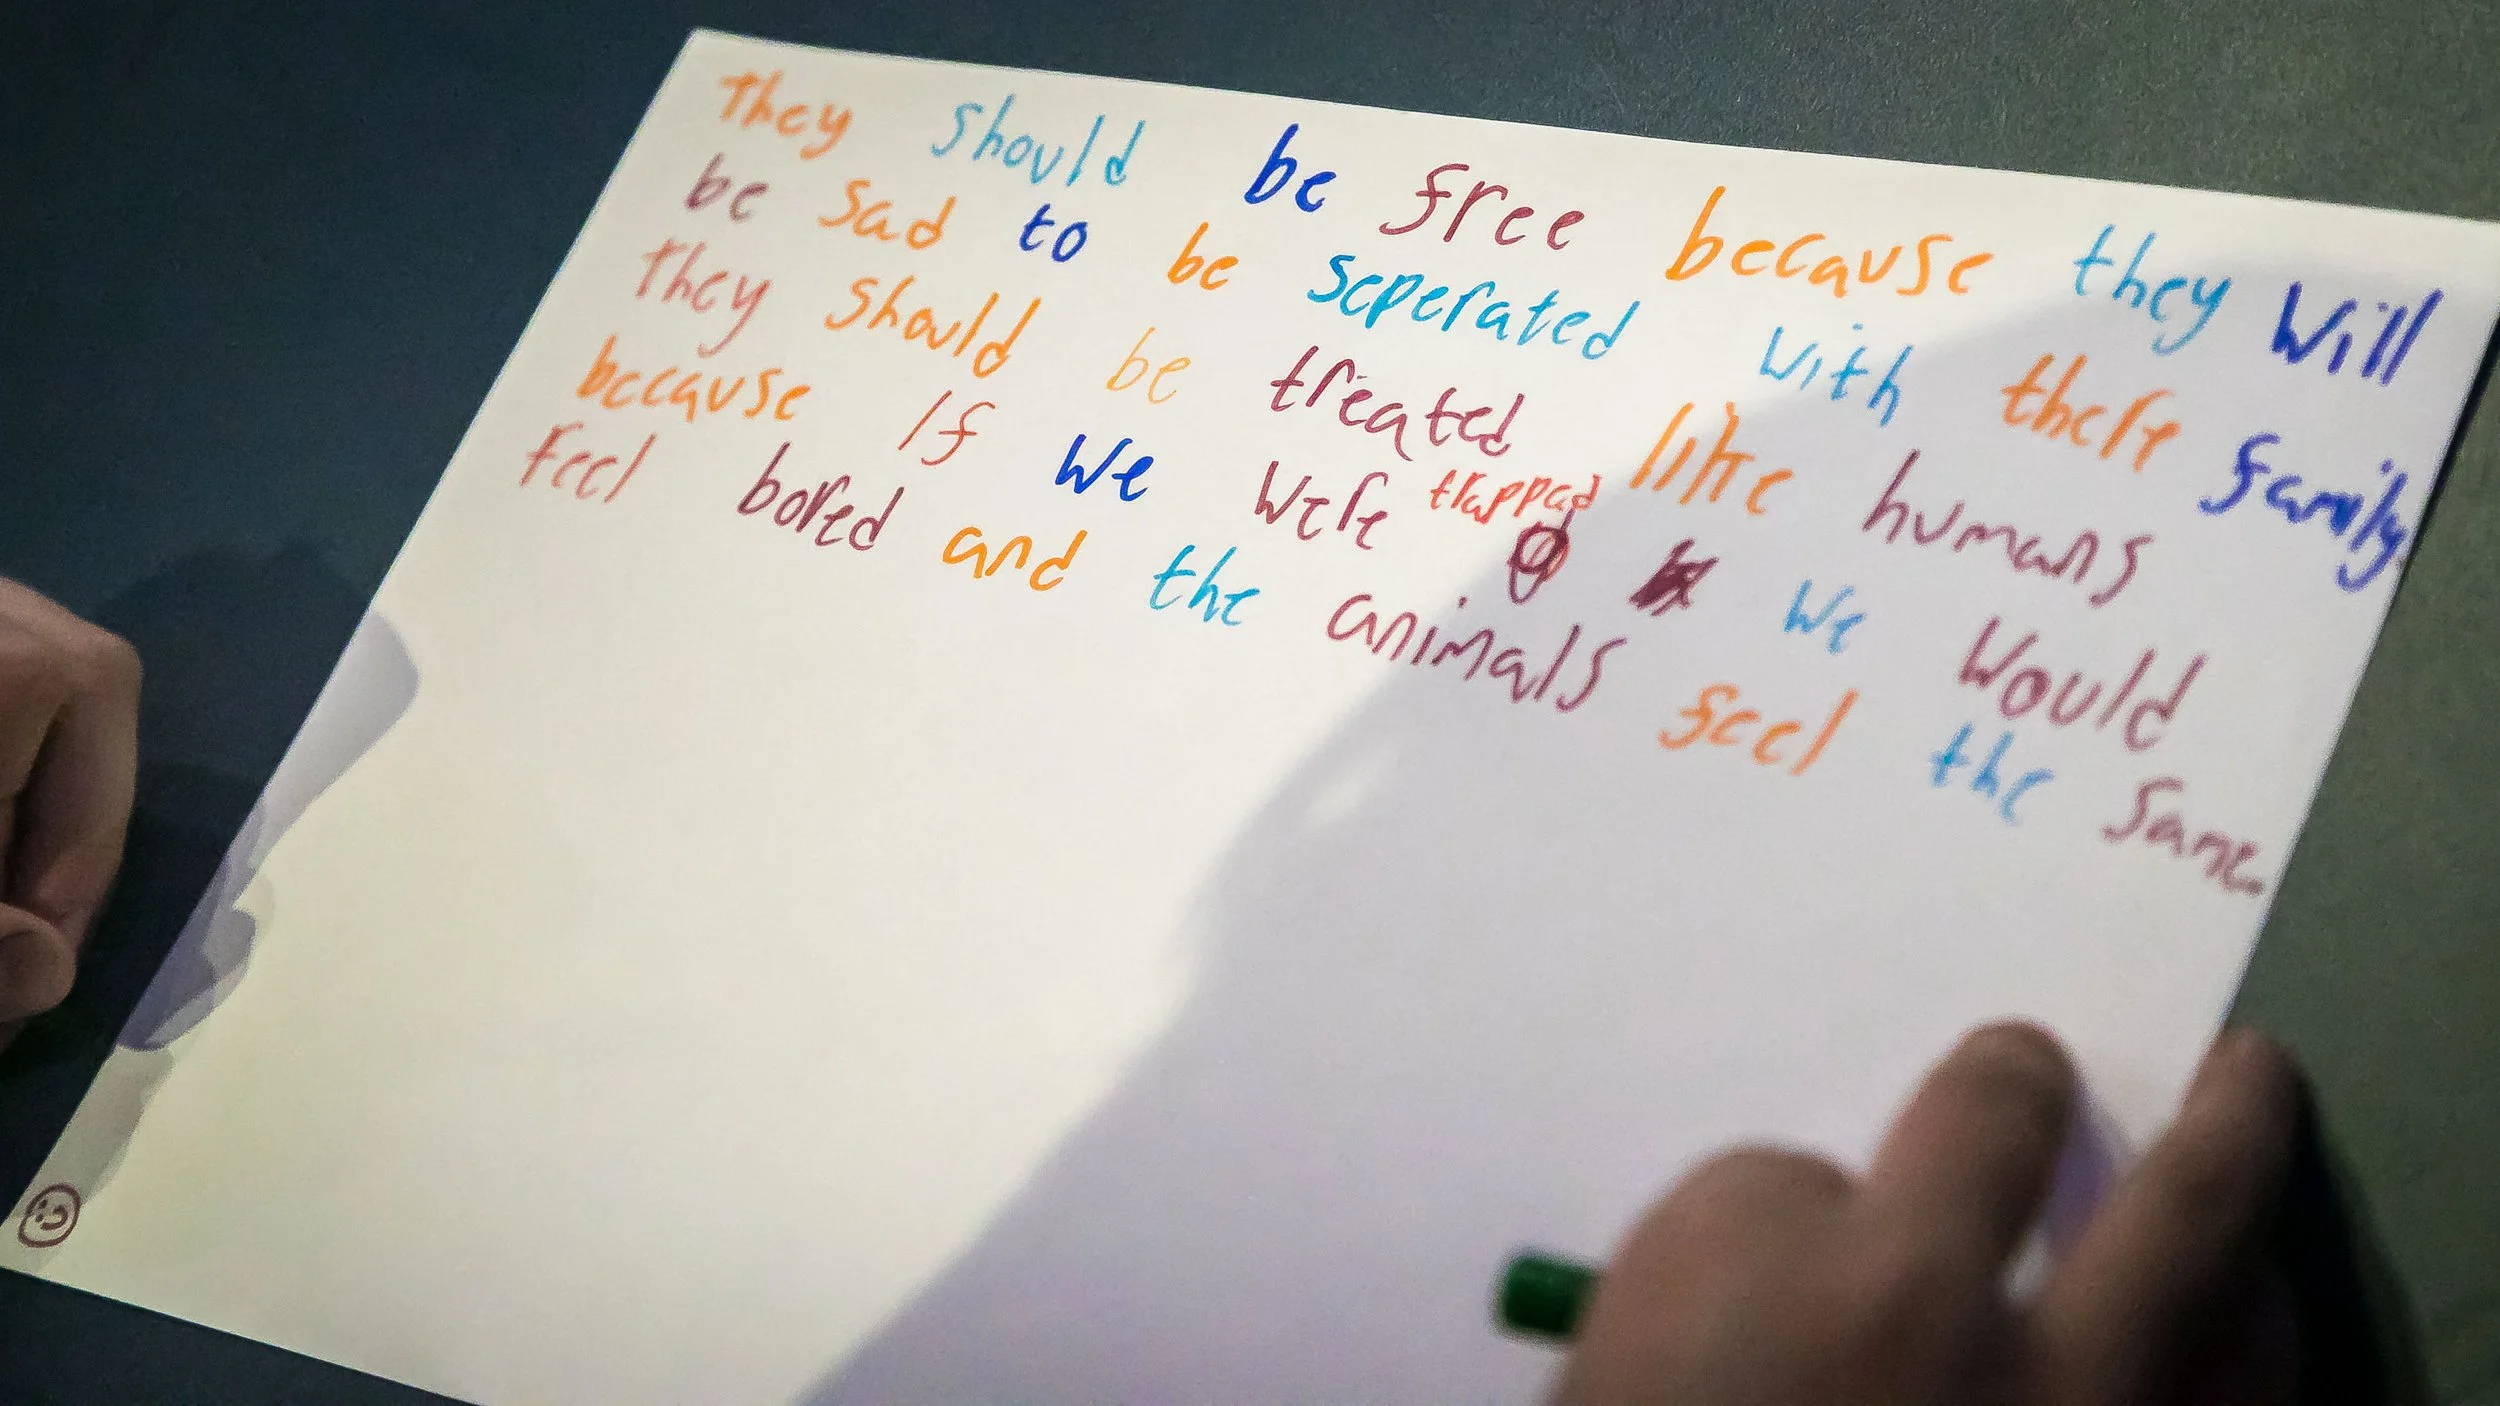 they should be free because they will
be sad to be seperated with there family
they should be treated like humans
because if we were trapped we would
feel bored and the animals feel the same.